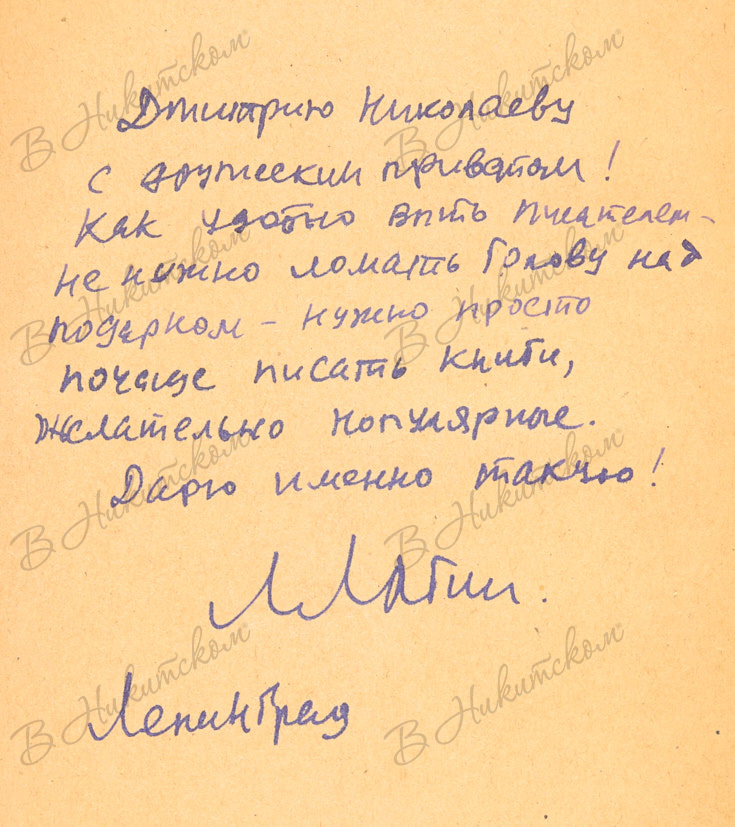 Дмитрию Николаеву
с дружеским приветом!
Как удобно быть писателем –
не нужно ломать голову над
подарком – нужно просто
почаще писать книги,
желательно популярные.
Дарю именно такую!
Ленинград
В Никитском
В Никитском
В Никитском
В Никитском
В Никитском
В Никитском
В Никитском
В Никитском